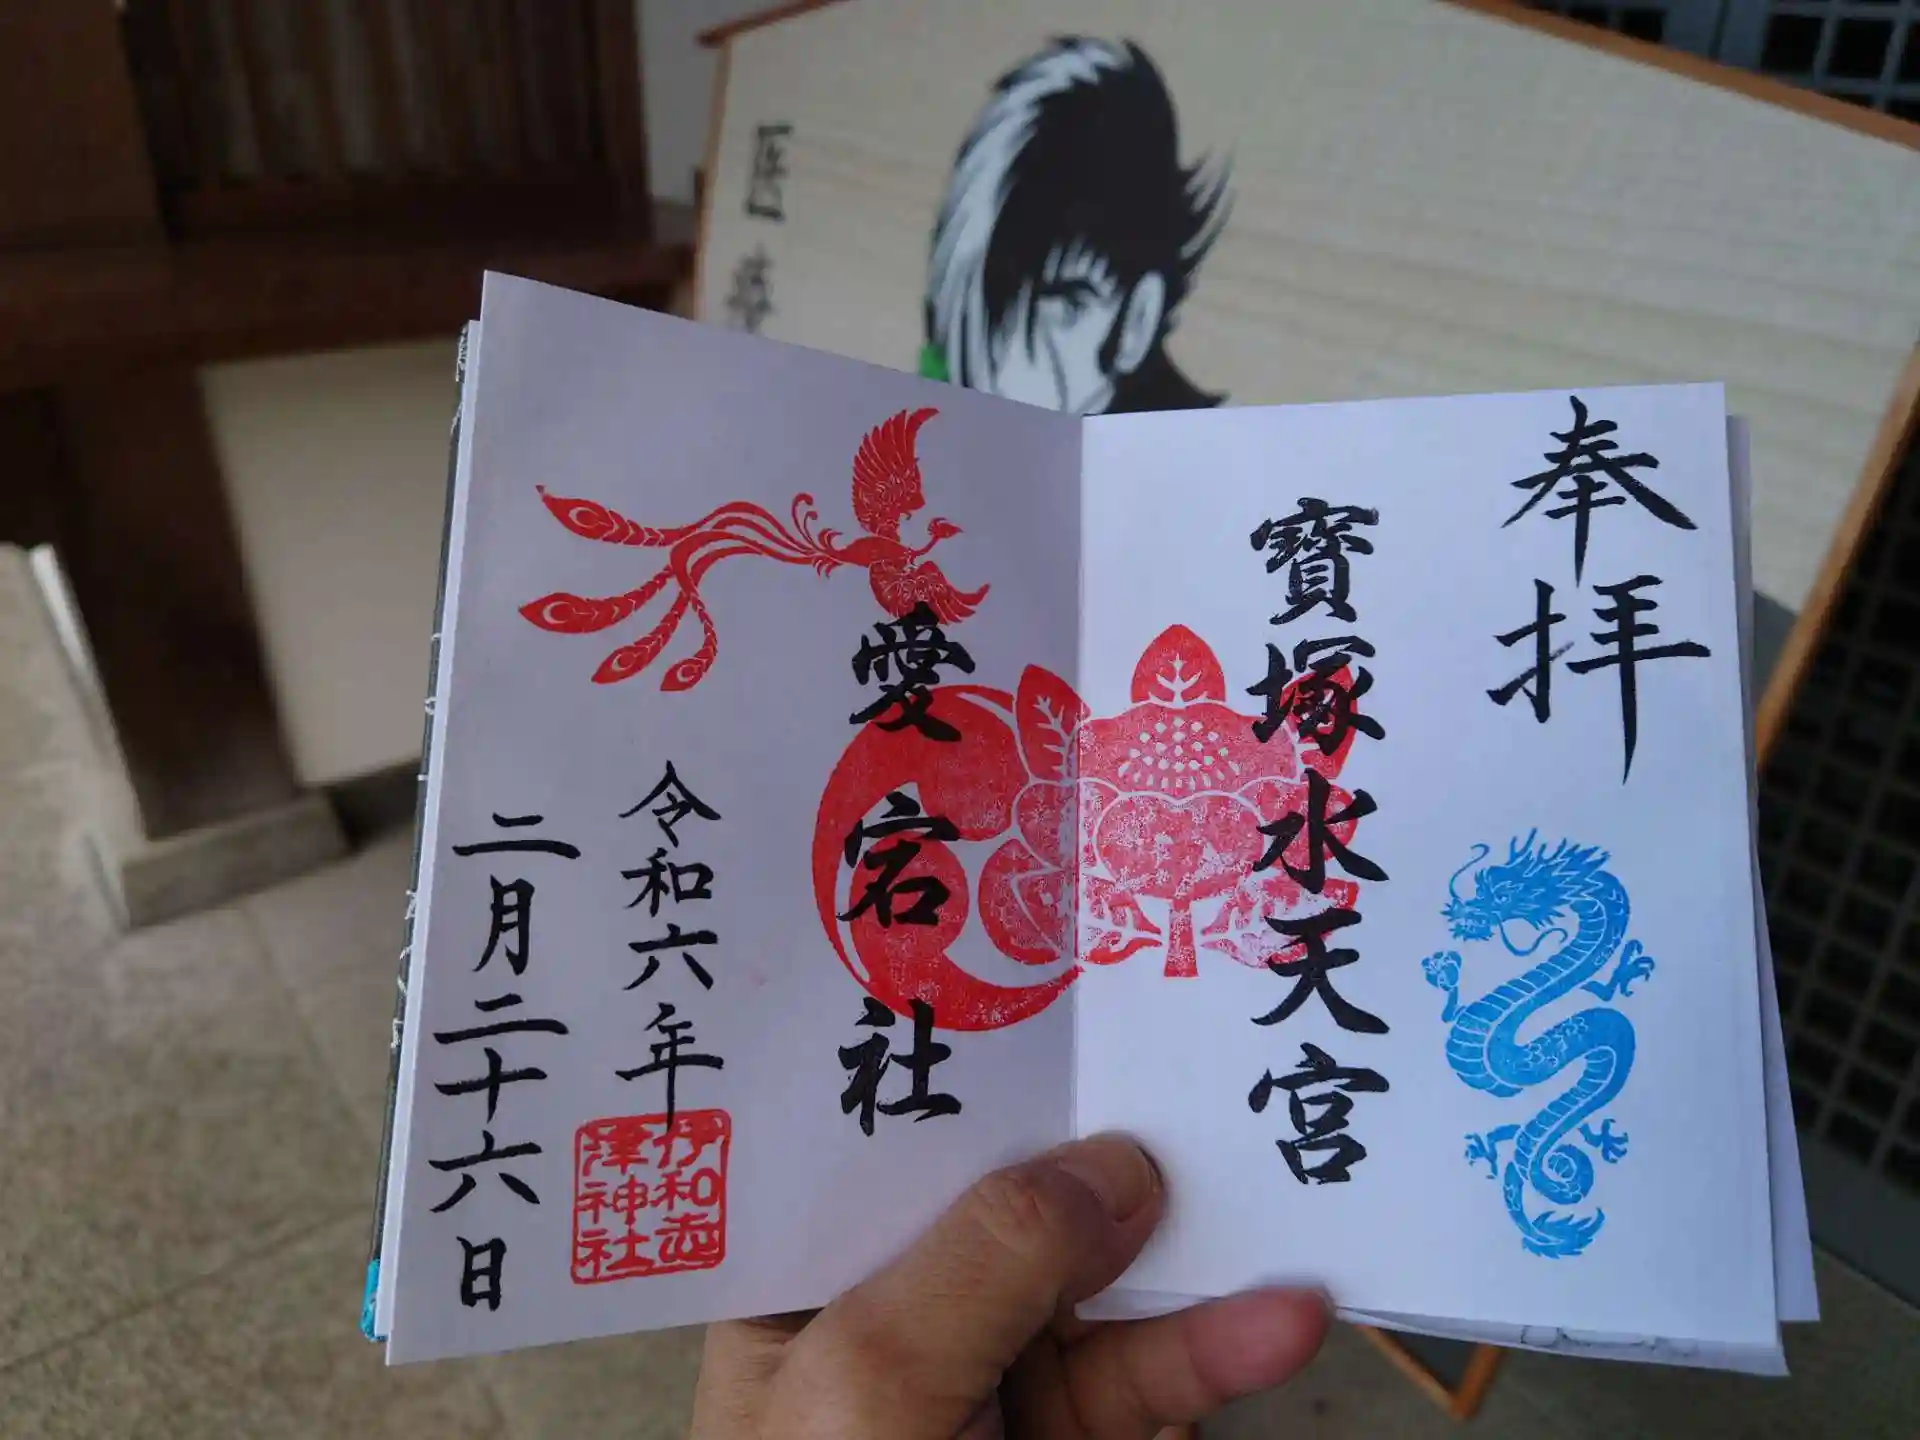 奉拝
寶塚水天宮
愛宕社
令和六年
二月二十六日
伊和志
津神社
医